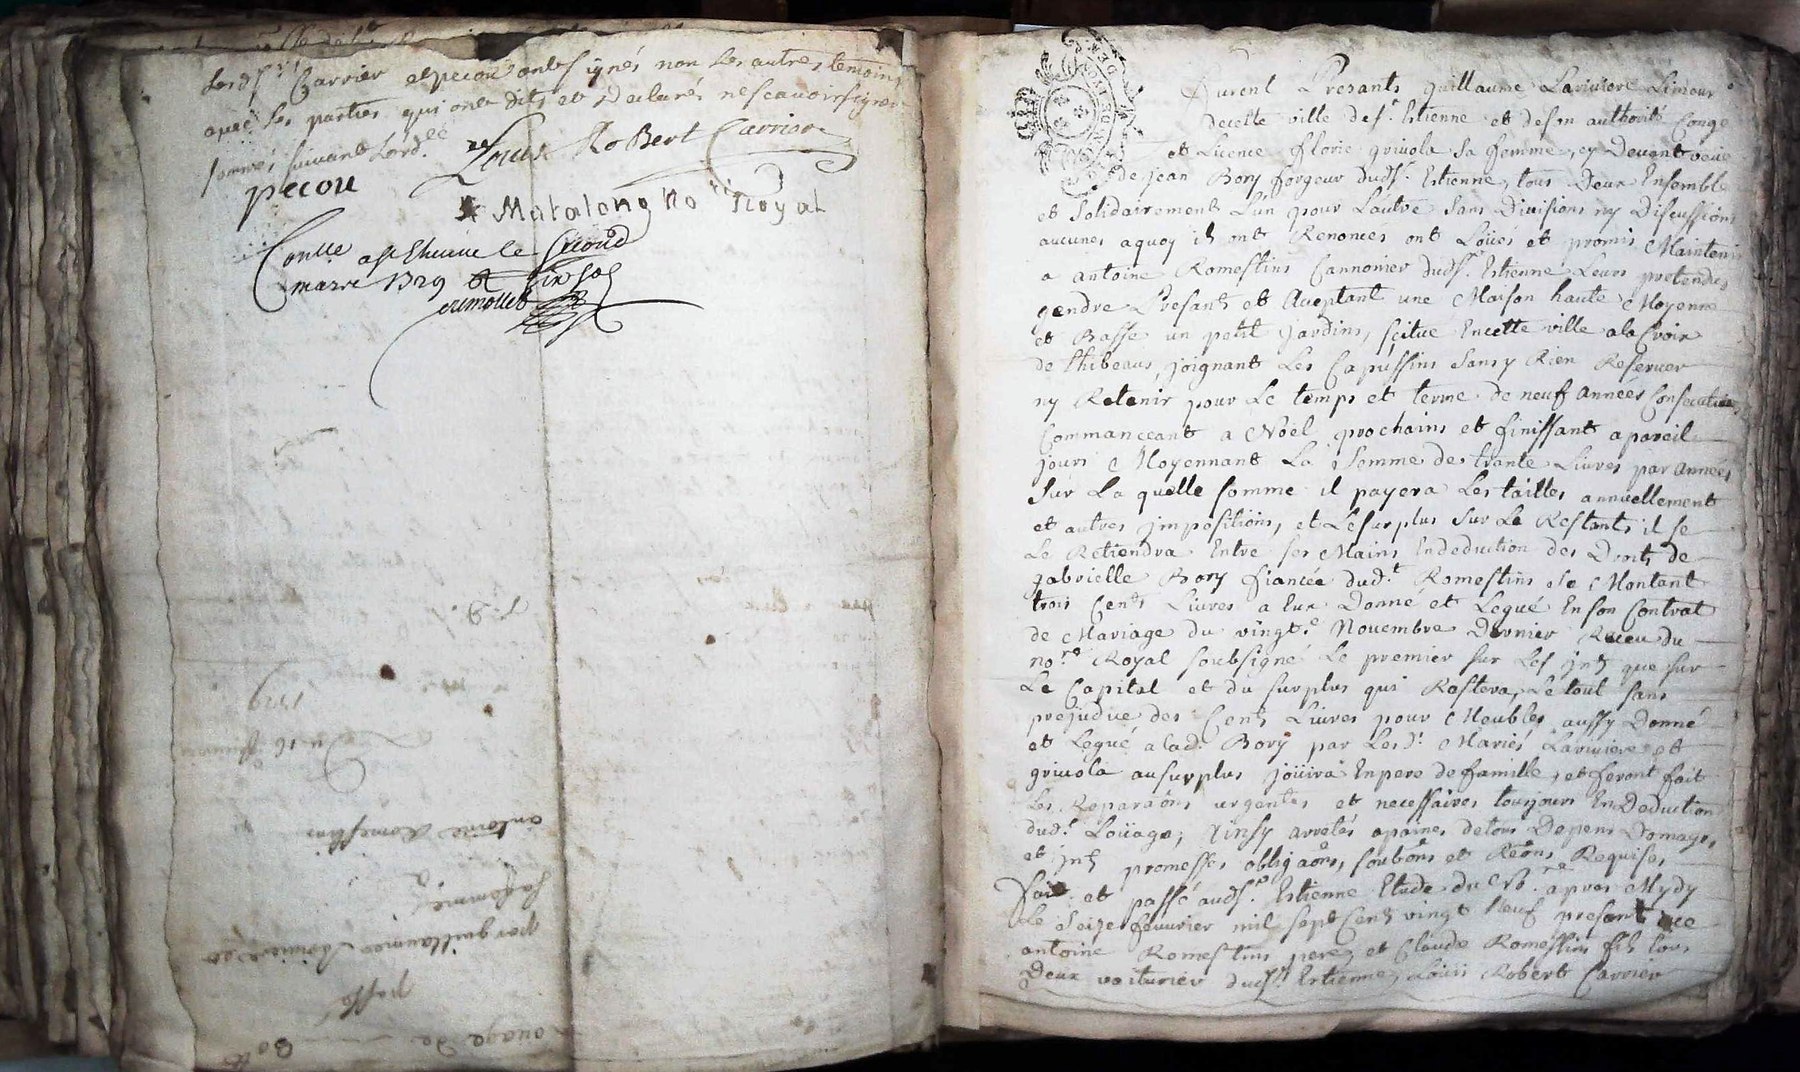 Lesds.rs Carrier et pecou ont signés non les autres temoins
avec les parties qui ont dits et declarés ne scavoir signer
sommés suivant Lord.ce
Louis Robert Carrier
pecou
Matalong no.re Royal
Conlle a st Etienne le Second
mars 1729
1729
Du 16 fevrier
antoine Romestins
par guillaume Lariviere et
sa femme
passé
Louage de
Furent Presants guillaume Lariviere Limeur
decette ville de s.t Estienne et de son authorité Congé
et Licence florie grivola sa femme, cy Devant veuve
de Jean Bory forgeur dud s.t Estienne, tous Deux Ensemble
et solidairement L'un pour Lautre sans Divisions ny Discussions
aucunes aquoy ils ont Renoncés ont Loüés et promis Maintenir
a antoine Romestins Cannonier dud s.t Estienne Leurs pretendus
gendre Presants et aceptant une Maison haute Moyenne
et Basse un petit Jardins, scitué Encette ville ala Croix
de thibeaus, joignant Les Capussins sans y Rien Reserver
ny Retenir pour Le temps et terme de neuf années Consecutives
Commanceant a Noël prochains et finissant apareil
jours Moyennant La somme de trante Livres par années
sur La quelle somme il payera Les tailles annuellement
et autres jmpositions, et Le surplus sur Le Restants il se
Le Retiendra Entre ses Mains Endeduction des Donts de
gabrielle Bory fiancée dud.t Romestins se Montant
trois Cents Livres a Eux Donné et Legué En son Contrat
de Mariage du vingt.e Novembre Dernier Receu du
no.re Royal soubsigné Le premier sur Les jnts que sur
Le Capital et du surplus qui Rastera, Le tout sans
prejudice des Cents Livres pour Meubles aussy Donné
et Legué alad. Bory par Lesd.s Mariés Lariviere et
grivola ausurplus joüira En pere de famille, et feront fait
Les Reparaõns urgentes et necessaires tousjours En Deduction
dud.t Loüage; Ainsy arretés apaines de tous Depens Domages,
et jnts promesses obligaõns, soubõns et Reõns Requises,
fait et passé aud s.t Estienne Etude du no.re apres Mydy
Le seize fevvrier mil sept Cents vingt Neuf presants ice
antoine Romestins pere, et Claude Romestins fils tous
Deux voiturier dud st Estienne, Louis Robert Carrier